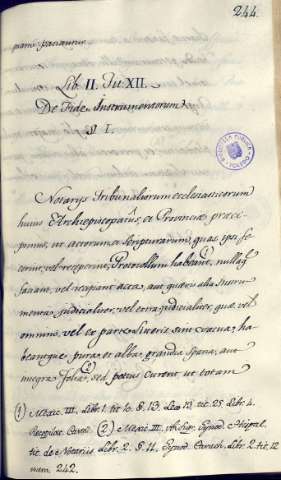 244.
piam præcavetur.
Lib. II. Tit. XII.
De Fide Instrumentorum
§. I.
Notarijs Tribunalium ecclesiasticorum
huius Archiepiscopatûs, et Provinciæ præci-
pimus, ut actorum, et scripturarum, quas ipsi fe-
cerint, vel receperint, Protocollum habeant, nullaq
faciant, vel recipiant acta, aut quævis alia Instru-
menta judicialiter, vel extrajudicialiter, quæ vel
omnino, vel ex parte Lineis sint vacua, ha-
beantque pura, et alba grandia spatia, aut
integra folia, (2) sed potius curent ut totam
(1) Mexic. III. Lib. 1. tit. 10. §. 13. Leo 10. tit. 25. Lib. 4.
Recopilat. Castel. (2) Mexic. III. Synod.
tit. de Notariis Lib. 2. §. 11. Synod. Lib. 2. tit. 12
num. 242.